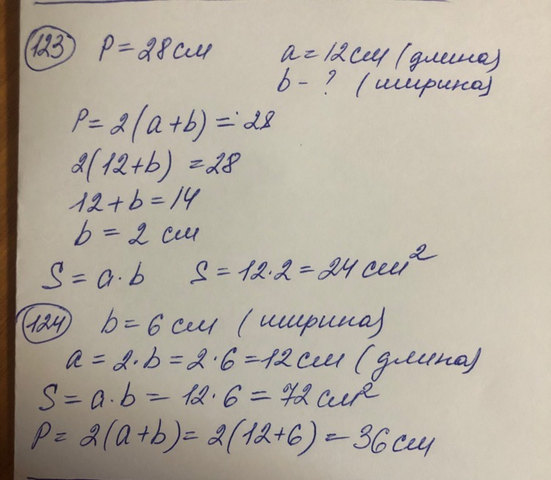 123 P = 28 см a = 12 см (длина)
b - ? (ширина)
P = 2(a+b) = 28
2(12+b) = 28
12 + b = 14
b = 2 см
S = a · b S = 12 · 2 = 24 см²
124 b = 6 см (ширина)
a = 2 · b = 2 · 6 = 12 см (длина)
S = a · b = 12 · 6 = 72 см²
P = 2(a+b) = 2(12+6) = 36 см